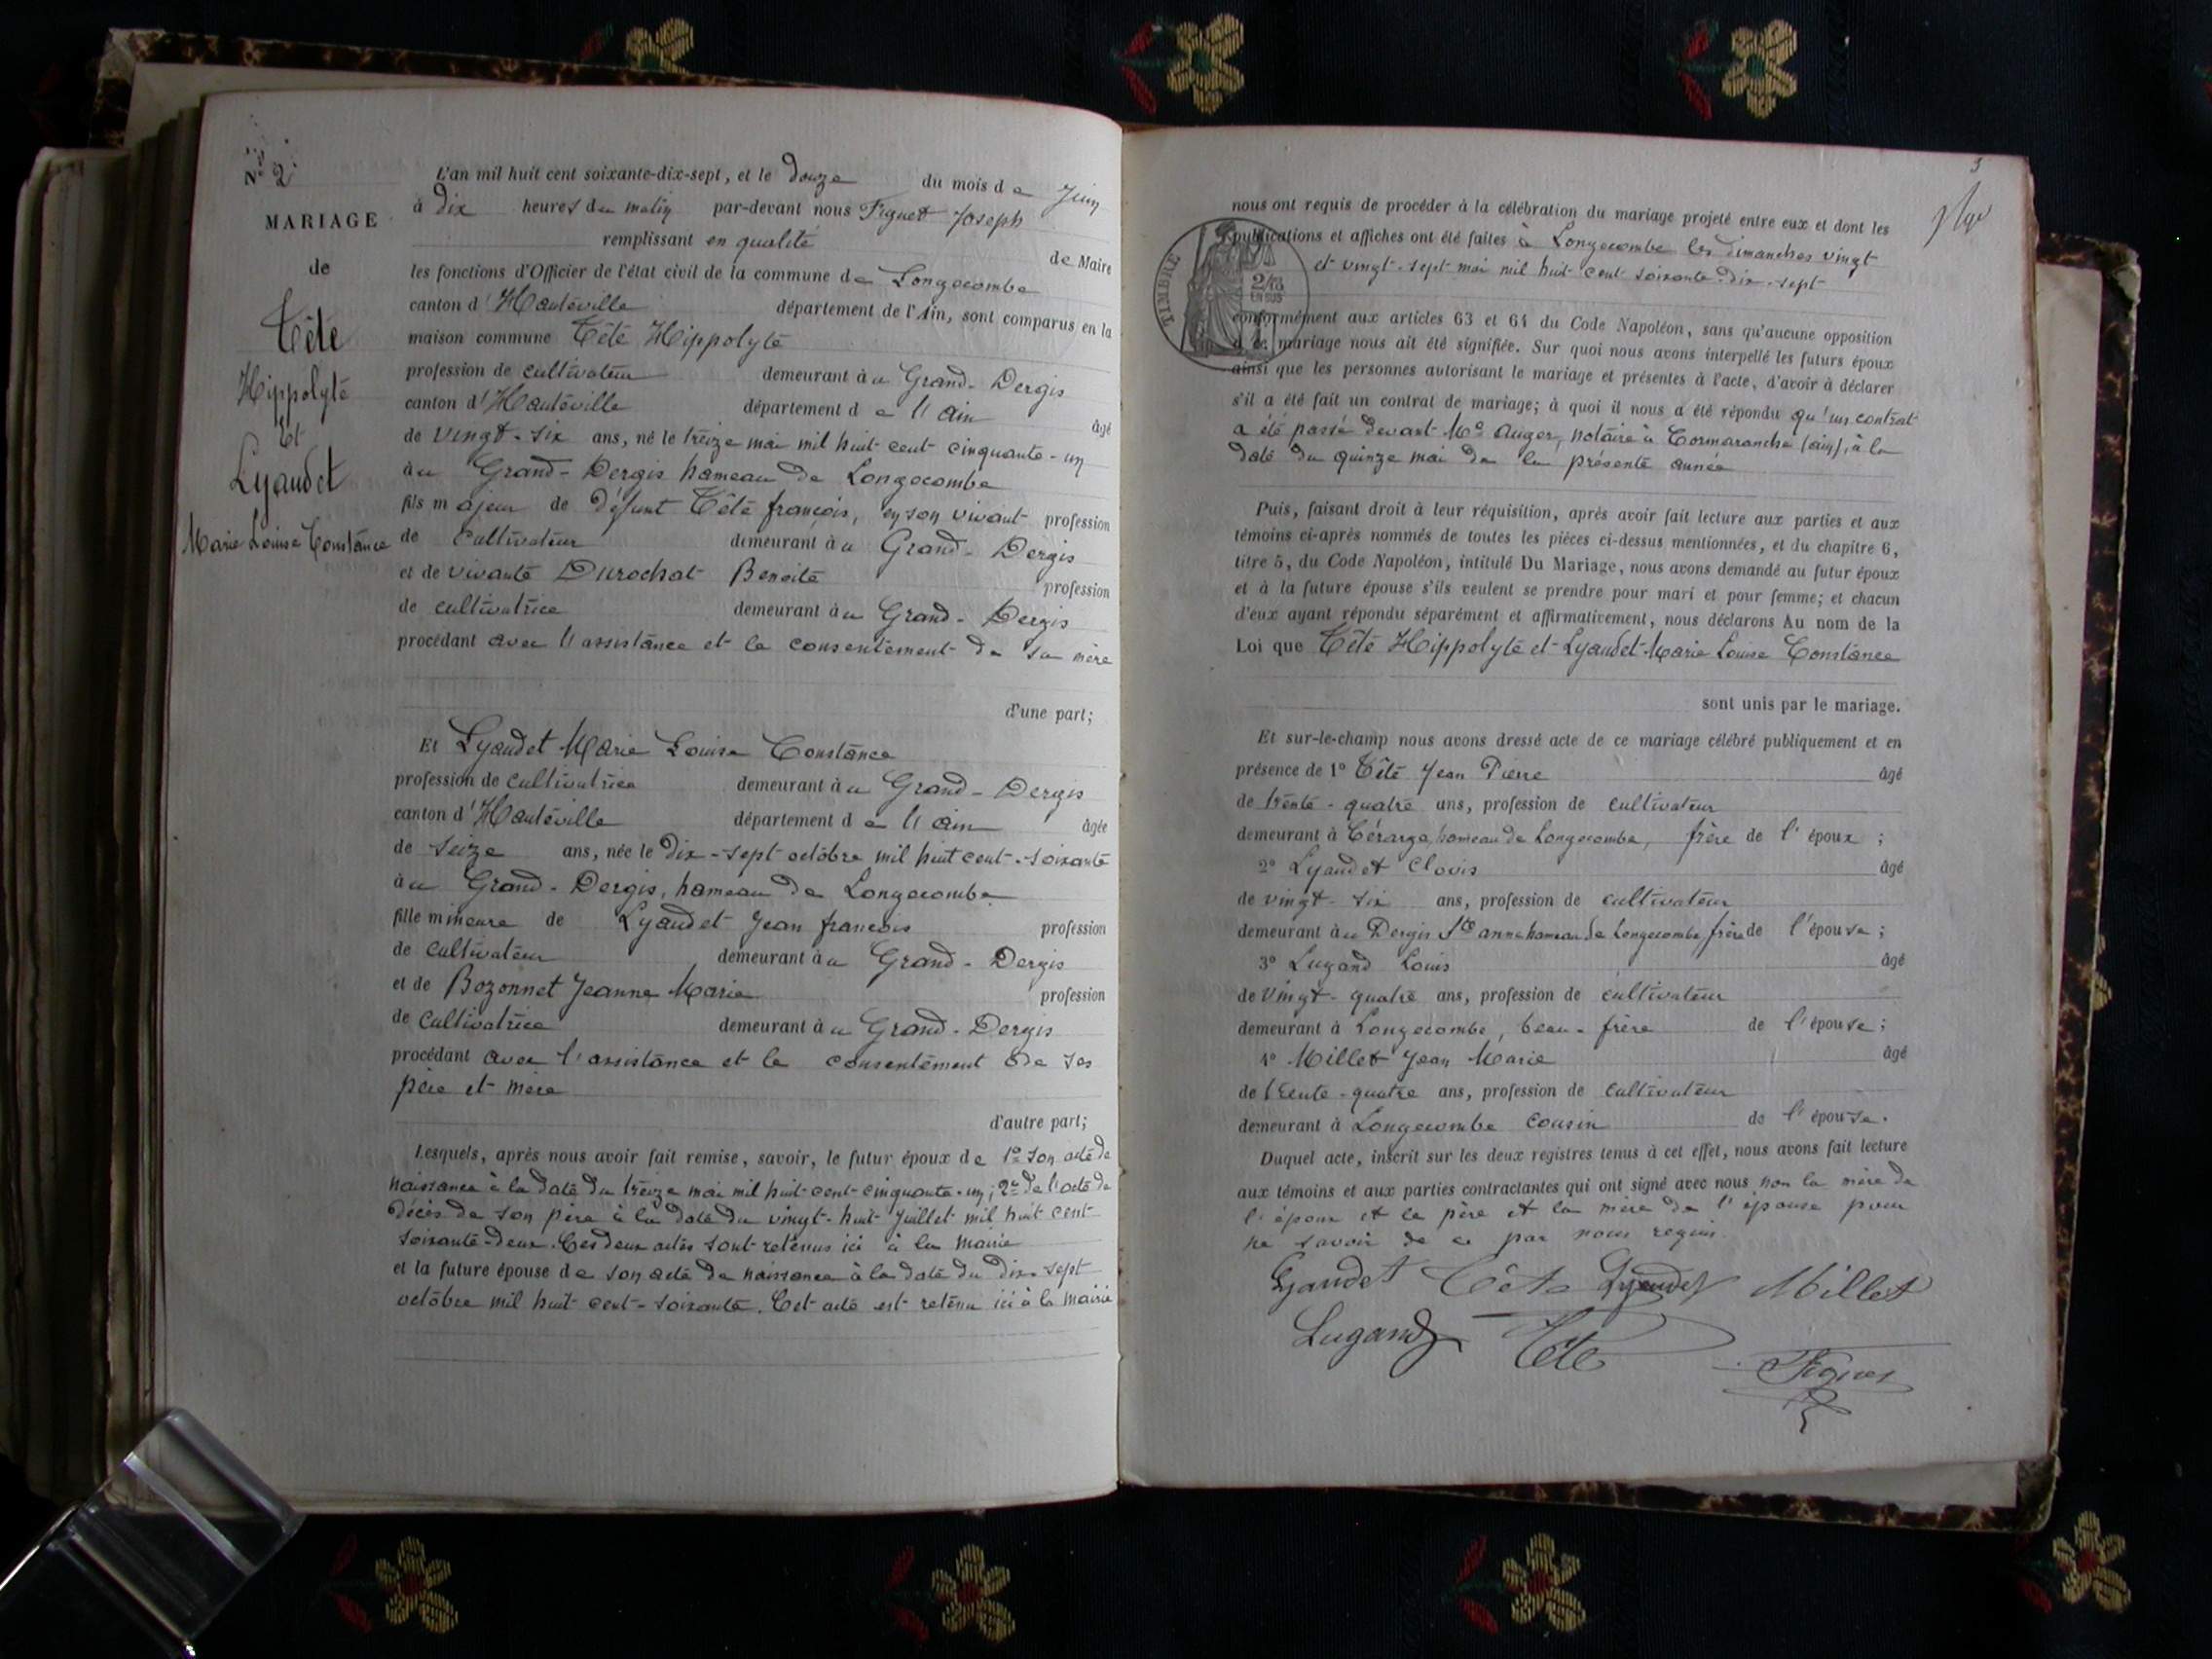 N° 2
MARIAGE
de
Tête
Hippolyte
et
Lyaudet
Marie Louise Constance
L'an mil huit cent soixante-dix-sept, et le douze du mois de Juin
à dix heures du matin par-devant nous Figuet Joseph
remplissant en qualité de Maire
les fonctions d'Officier de l'état civil de la commune de Longecombe
canton d'Hauteville département de l'Ain, sont comparus en la
maison commune Tête Hippolyte
profession de cultivateur demeurant à u Grand-Dergis
canton d'Hauteville département de l'ain âgé
de vingt-six ans, né le treize mai mil huit cent cinquante-un
à u Grand-Dergis hameau de Longecombe
fils majeur de défunt Tête françois, en son vivant profession
de cultivateur demeurant à u Grand-Dergis
et de vivante Durochat Benoite profession
de cultivatrice demeurant à u Grand-Dergis
procédant avec l'assistance et le consentement de sa mère
d'une part;
Et Lyaudet Marie Louise Constance
profession de cultivatrice demeurant à u Grand-Dergis
canton d'Hauteville département de l'ain âgée
de seize ans, née le dix-sept octobre mil huit cent-soixante
à u Grand-Dergis, hameau de Longecombe
fille mineure de Lyaudet Jean françois profession
de cultivateur demeurant à u Grand-Dergis
et de Bozonnet Jeanne Marie profession
de cultivatrice demeurant à u Grand-Dergis
procédant avec l'assistance et le consentement de ses
père et mère
d'autre part;
Lesquels, après nous avoir fait remise, savoir, le futur époux de 1° son acte de
naissance à la date du treize mai mil huit-cent-cinquante-un; 2° de l'acte de
décès de son père à la date du vingt-huit Juillet mil huit cent
soixante-deux. Ces deux actes sont retenus ici à la mairie
et la future épouse de son acte de naissance à la date du dix-sept
octobre mil huit cent-soixante. Cet acte est retenu ici à la mairie
3
nous ont requis de procéder à la célébration du mariage projeté entre eux et dont les
publications et affiches ont été faites à Longecombe les dimanches vingt
et vingt-sept mai mil huit cent soixante-dix-sept
TIMBRE
2/10
EN SUS
conformément aux articles 63 et 64 du Code Napoléon, sans qu'aucune opposition
à ce mariage nous ait été signifiée. Sur quoi nous avons interpellé les futurs époux
ainsi que les personnes autorisant le mariage et présentes à l'acte, d'avoir à déclarer
s'il a été fait un contrat de mariage; à quoi il nous a été répondu qu'un contrat
a été passé devant Me Auger, notaire à Cormaranche (ain), à la
date du quinze mai de la présente année
Puis, faisant droit à leur réquisition, après avoir fait lecture aux parties et aux
témoins ci-après nommés de toutes les pièces ci-dessus mentionnées, et du chapitre 6,
titre 5, du Code Napoléon, intitulé Du Mariage, nous avons demandé au futur époux
et à la future épouse s'ils veulent se prendre pour mari et pour femme; et chacun
d'eux ayant répondu séparément et affirmativement, nous déclarons Au nom de la
Loi que Tête Hippolyte et Lyaudet Marie Louise Constance
sont unis par le mariage.
Et sur-le-champ nous avons dressé acte de ce mariage célébré publiquement et en
présence de 1° Tête Jean Pierre âgé
de trente-quatre ans, profession de cultivateur
demeurant à Cérarge, hameau de Longecombe, frère de l'époux;
2° Lyaudet Clovis âgé
de vingt-six ans, profession de cultivateur
demeurant à u Dergis Ste anne hameau de Longecombe frère de l'épouse;
3° Lugand Louis âgé
de vingt-quatre ans, profession de cultivateur
demeurant à Longecombe, beau-frère de l'épouse;
4° Millet Jean Marie âgé
de trente-quatre ans, profession de cultivateur
demeurant à Longecombe cousin de l'épouse.
Duquel acte, inscrit sur les deux registres tenus à cet effet, nous avons fait lecture
aux témoins et aux parties contractantes qui ont signé avec nous non la mère de
l'époux et le père et la mère de l'épouse pour
ne savoir de ce par nous requis.
Lyaudet Tête Lyaudet Millet
Lugand Tête
Figuet